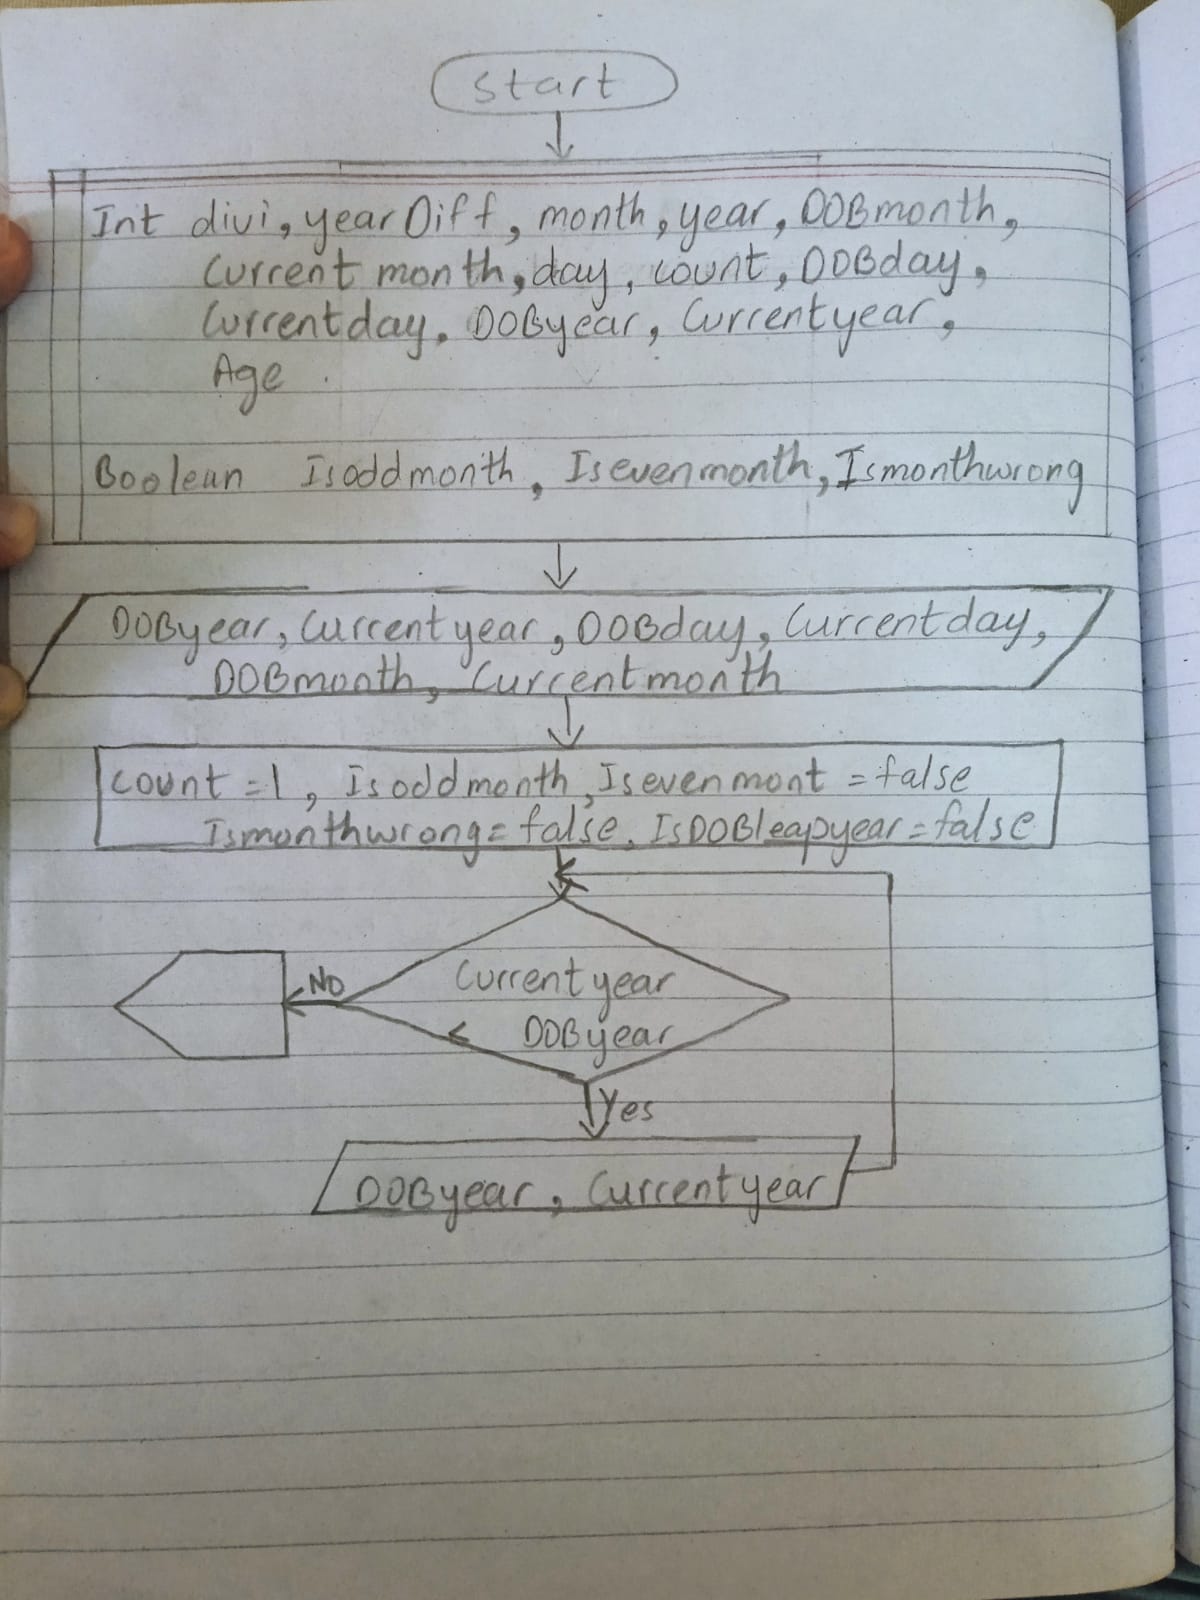 Start
Int divi, yearDiff, month, year, DOBmonth,
Current month, day, count, DOBday,
Currentday, DOByear, Currentyear,
Age
Boolean Isoddmonth, Isevenmonth, Ismonthwrong
DOByear, Current year, DOBday, Currentday,
DOBmonth, Currentmonth
count = 1, Isoddmonth, Isevenmont = false
Ismonthwrong = false, IsDOBleapyear = false
NO
Current year
< DOByear
Yes
DOByear, Currentyear